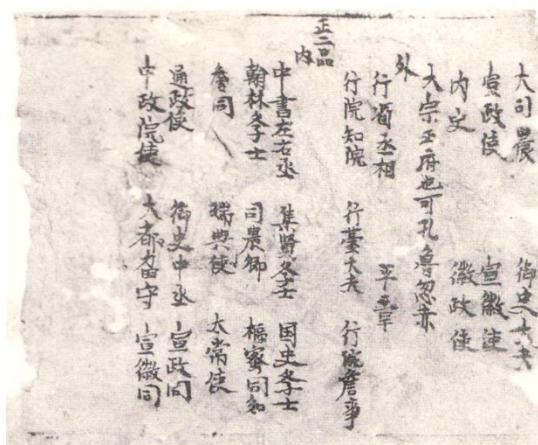 大司農 御史大夫
宣政使 宣徽使
内史 徽政使
大宗正府也可孔魯忽赤
外
行省丞相 平章
行院知院 行臺大夫 行院詹事
正二品
内
中書左右丞 集賢学士 国史学士
翰林学士 司農卿 樞密同知
同 瑞典使 太常使
通政使 御史中丞 宣政同
中政院使 大都留守 宣徽同